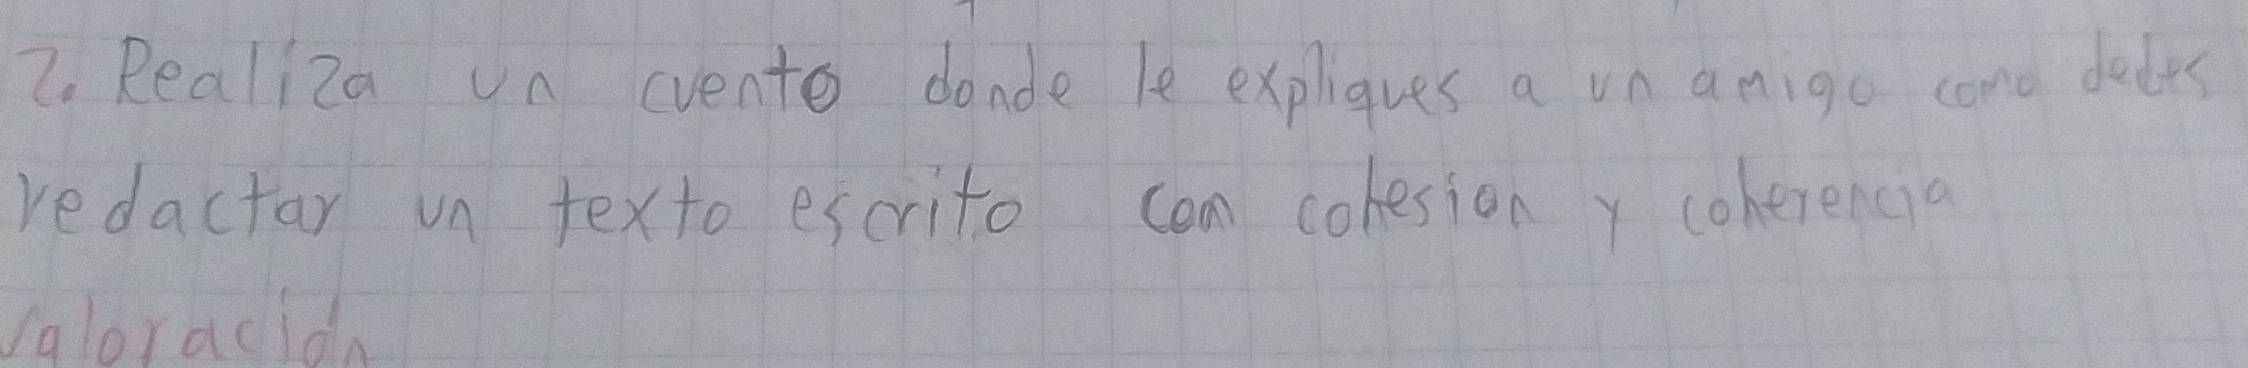 2. Realiza un cuento donde le expliques a un amigo como debes
redactar un texto escrito com cohesion y coherencia
valoración